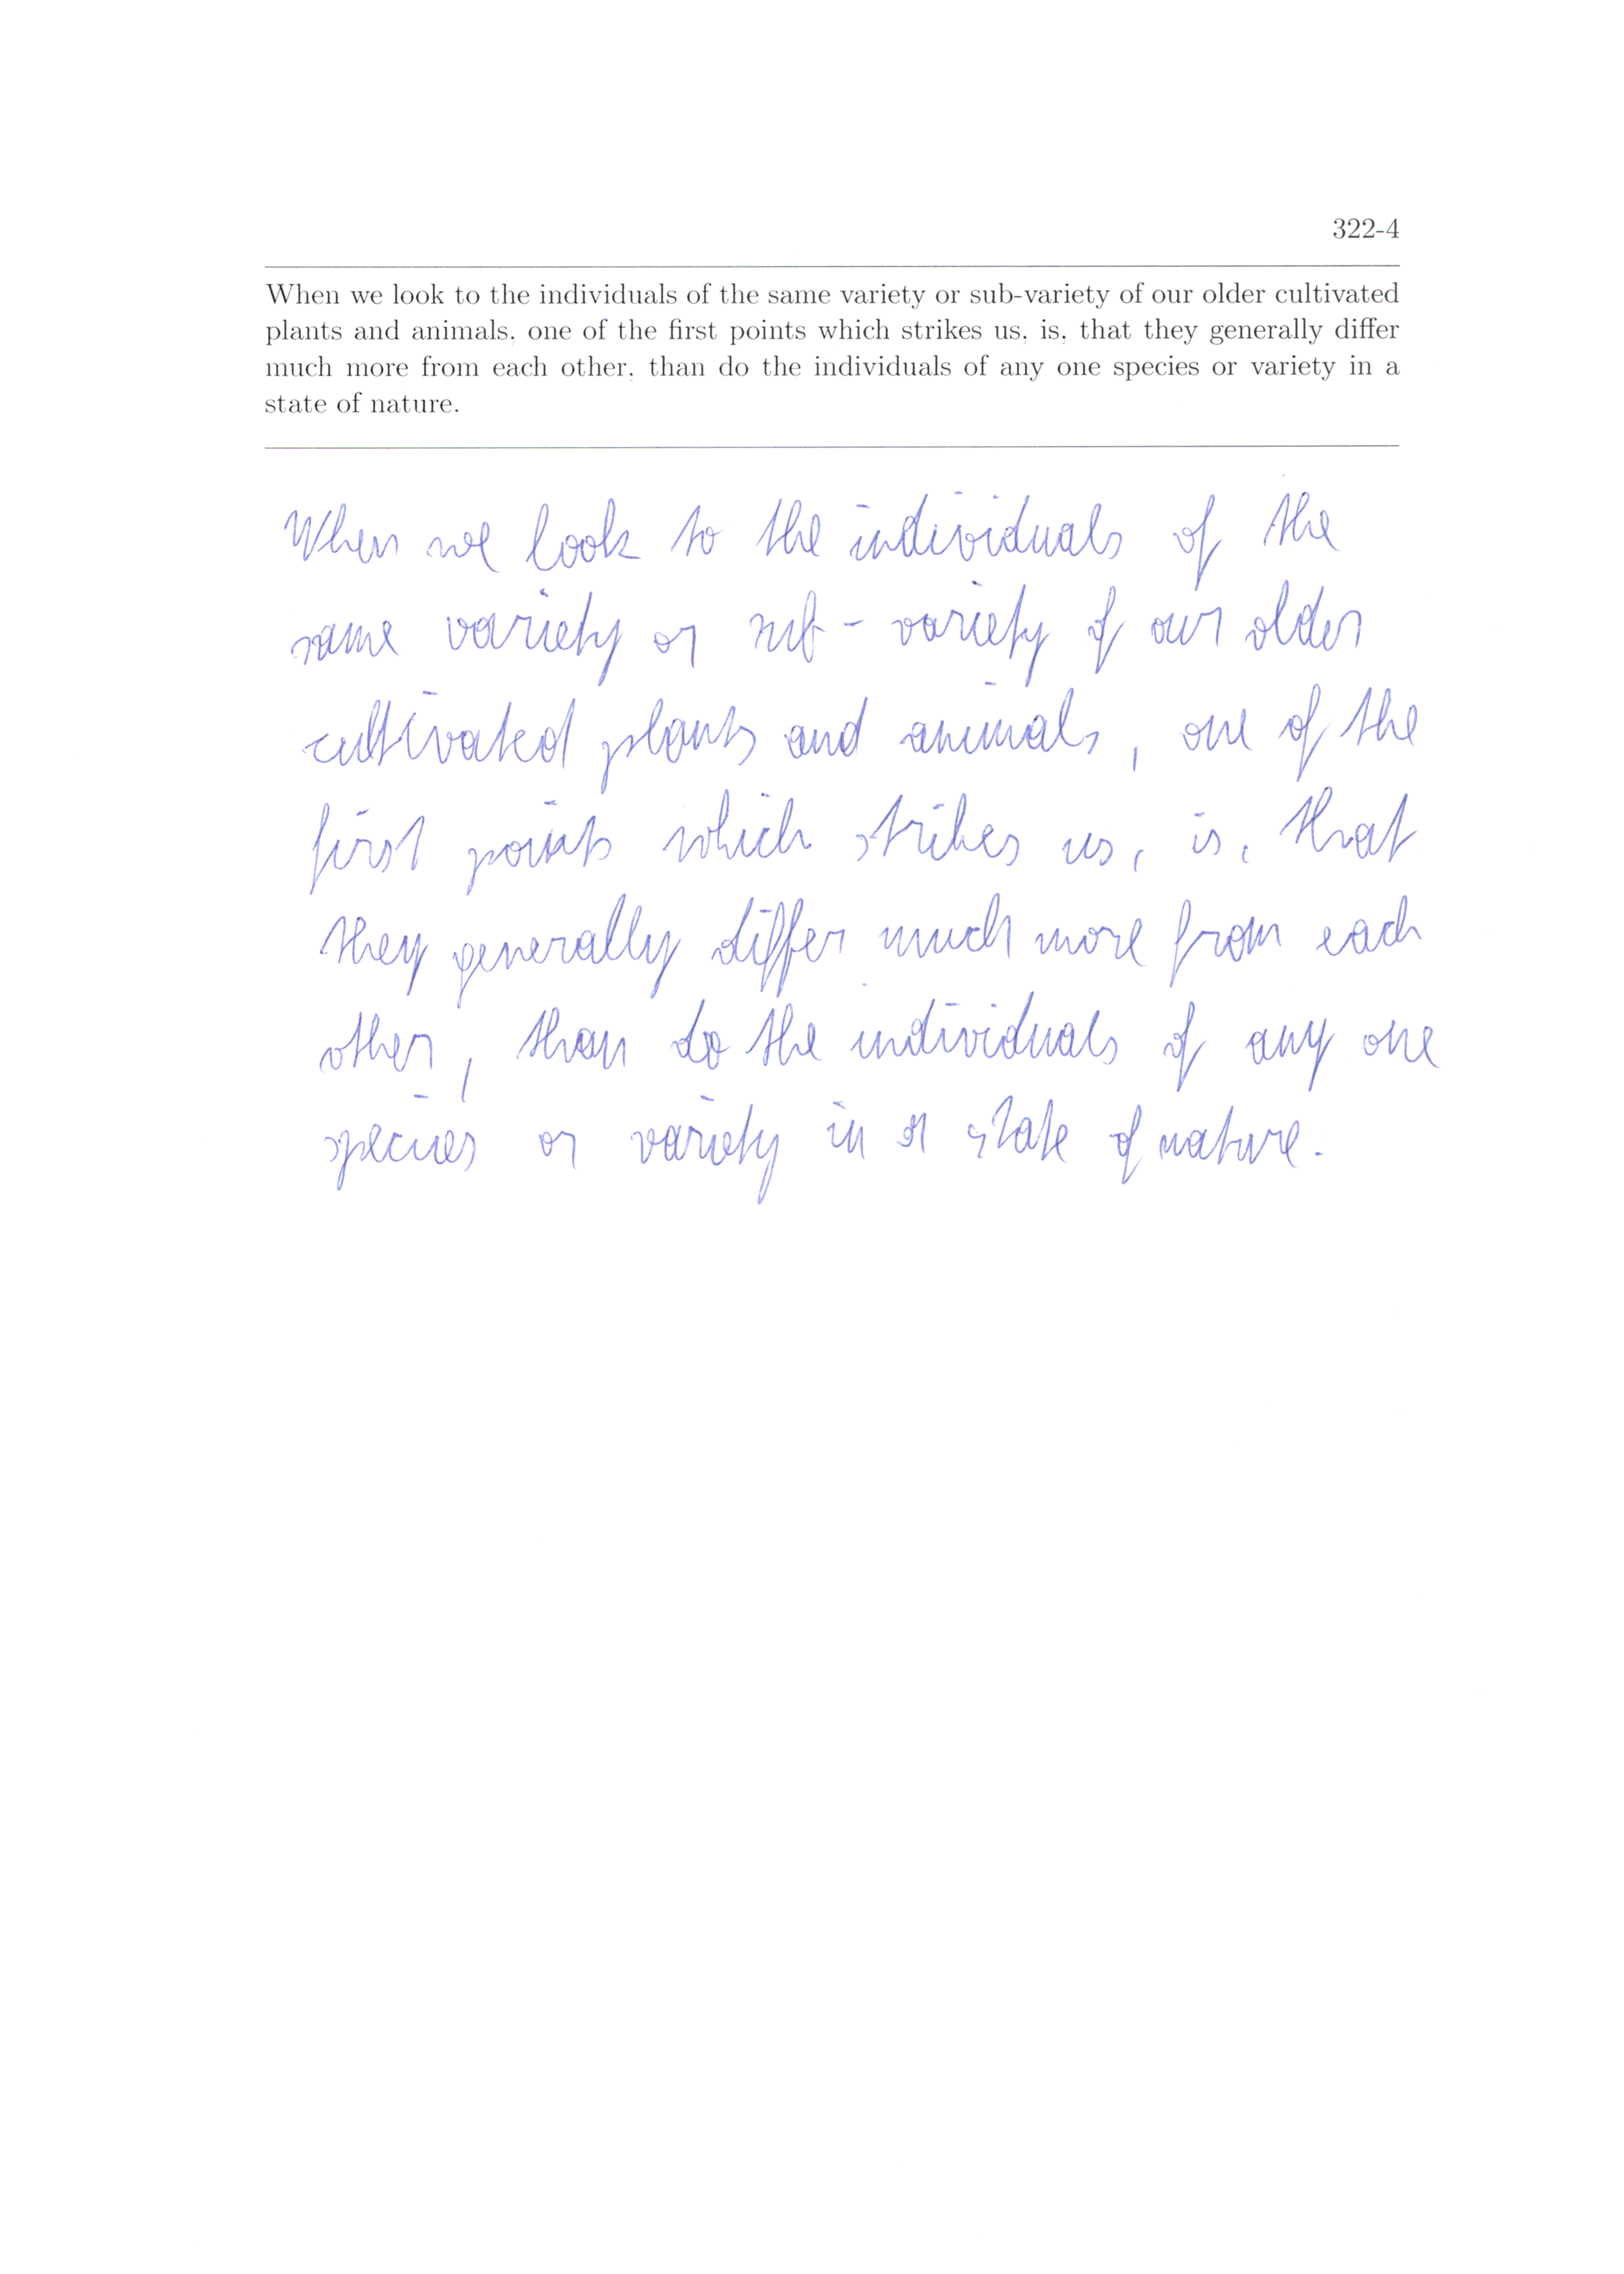 322-4
When we look to the individuals of the same variety or sub-variety of our older cultivated
plants and animals, one of the first points which strikes us, is, that they generally differ
much more from each other, than do the individuals of any one species or variety in a
state of nature.
When we look to the individuals of the
same variety or sub-variety of our older
cultivated plants and animals, one of the
first points which strikes us, is, that
they generally differ much more from each
other, than do the individuals of any one
species or variety in a state of nature.